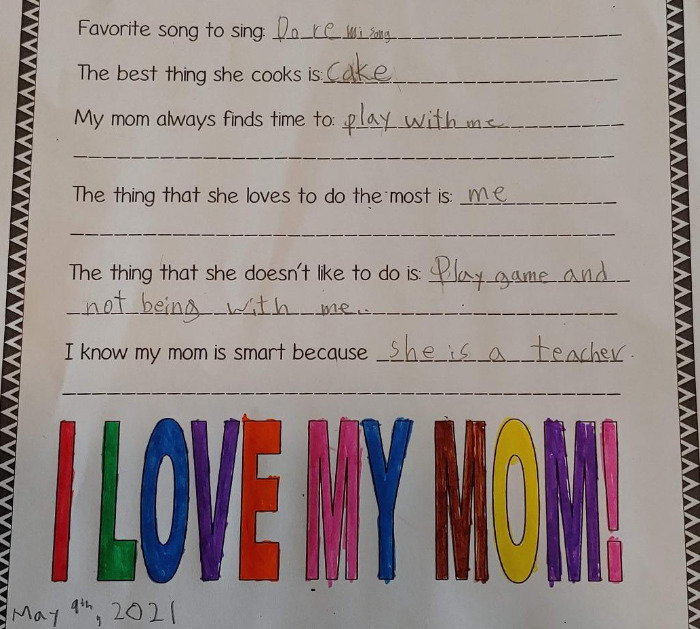 Favorite song to sing: Do re mi song
The best thing she cooks is: cake
My mom always finds time to: play with me
The thing that she loves to do the most is: me
The thing that she doesn't like to do is: Play game and
not being with me..
I know my mom is smart because she is a teacher.
I LOVE MY MOM!
May 9th, 2021